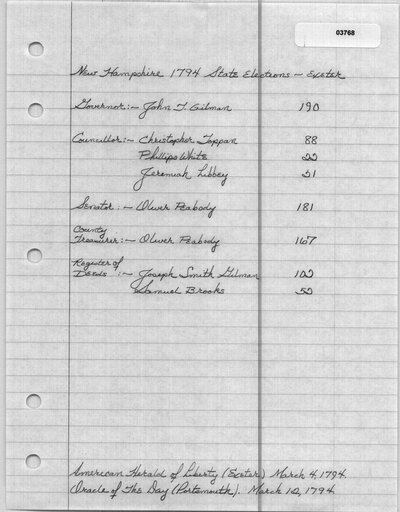 03768
New Hampshire 1794 State Elections - Exeter
Governor:- John T. Gilman 190
Councillor:- Christopher Toppan 88
Phillips White 22
Jeremiah Libbey 21
Senator:- Oliver Peabody 181
County
Treasurer:- Oliver Peabody 167
Register of
Deeds:- Joseph Smith Gilman 102
Samuel Brooks 52
American Herald of Liberty (Exeter) March 4, 1794.
Oracle of The Day (Portsmouth). March 12, 1794